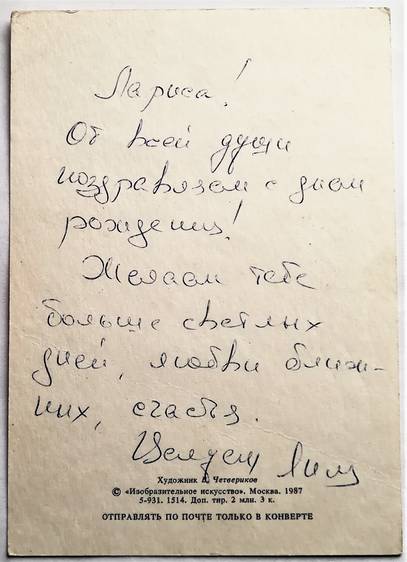 Лариса!
От всей души
поздравляем с днем
рождения!
Желаем тебе
больше светлых
дней, любви ближ-
них, счастья.
Художник А. Четвериков
© «Изобразительное искусство». Москва. 1987
5-931. 1514. Доп. тир. 2 млн. 3 к.
ОТПРАВЛЯТЬ ПО ПОЧТЕ ТОЛЬКО В КОНВЕРТЕ